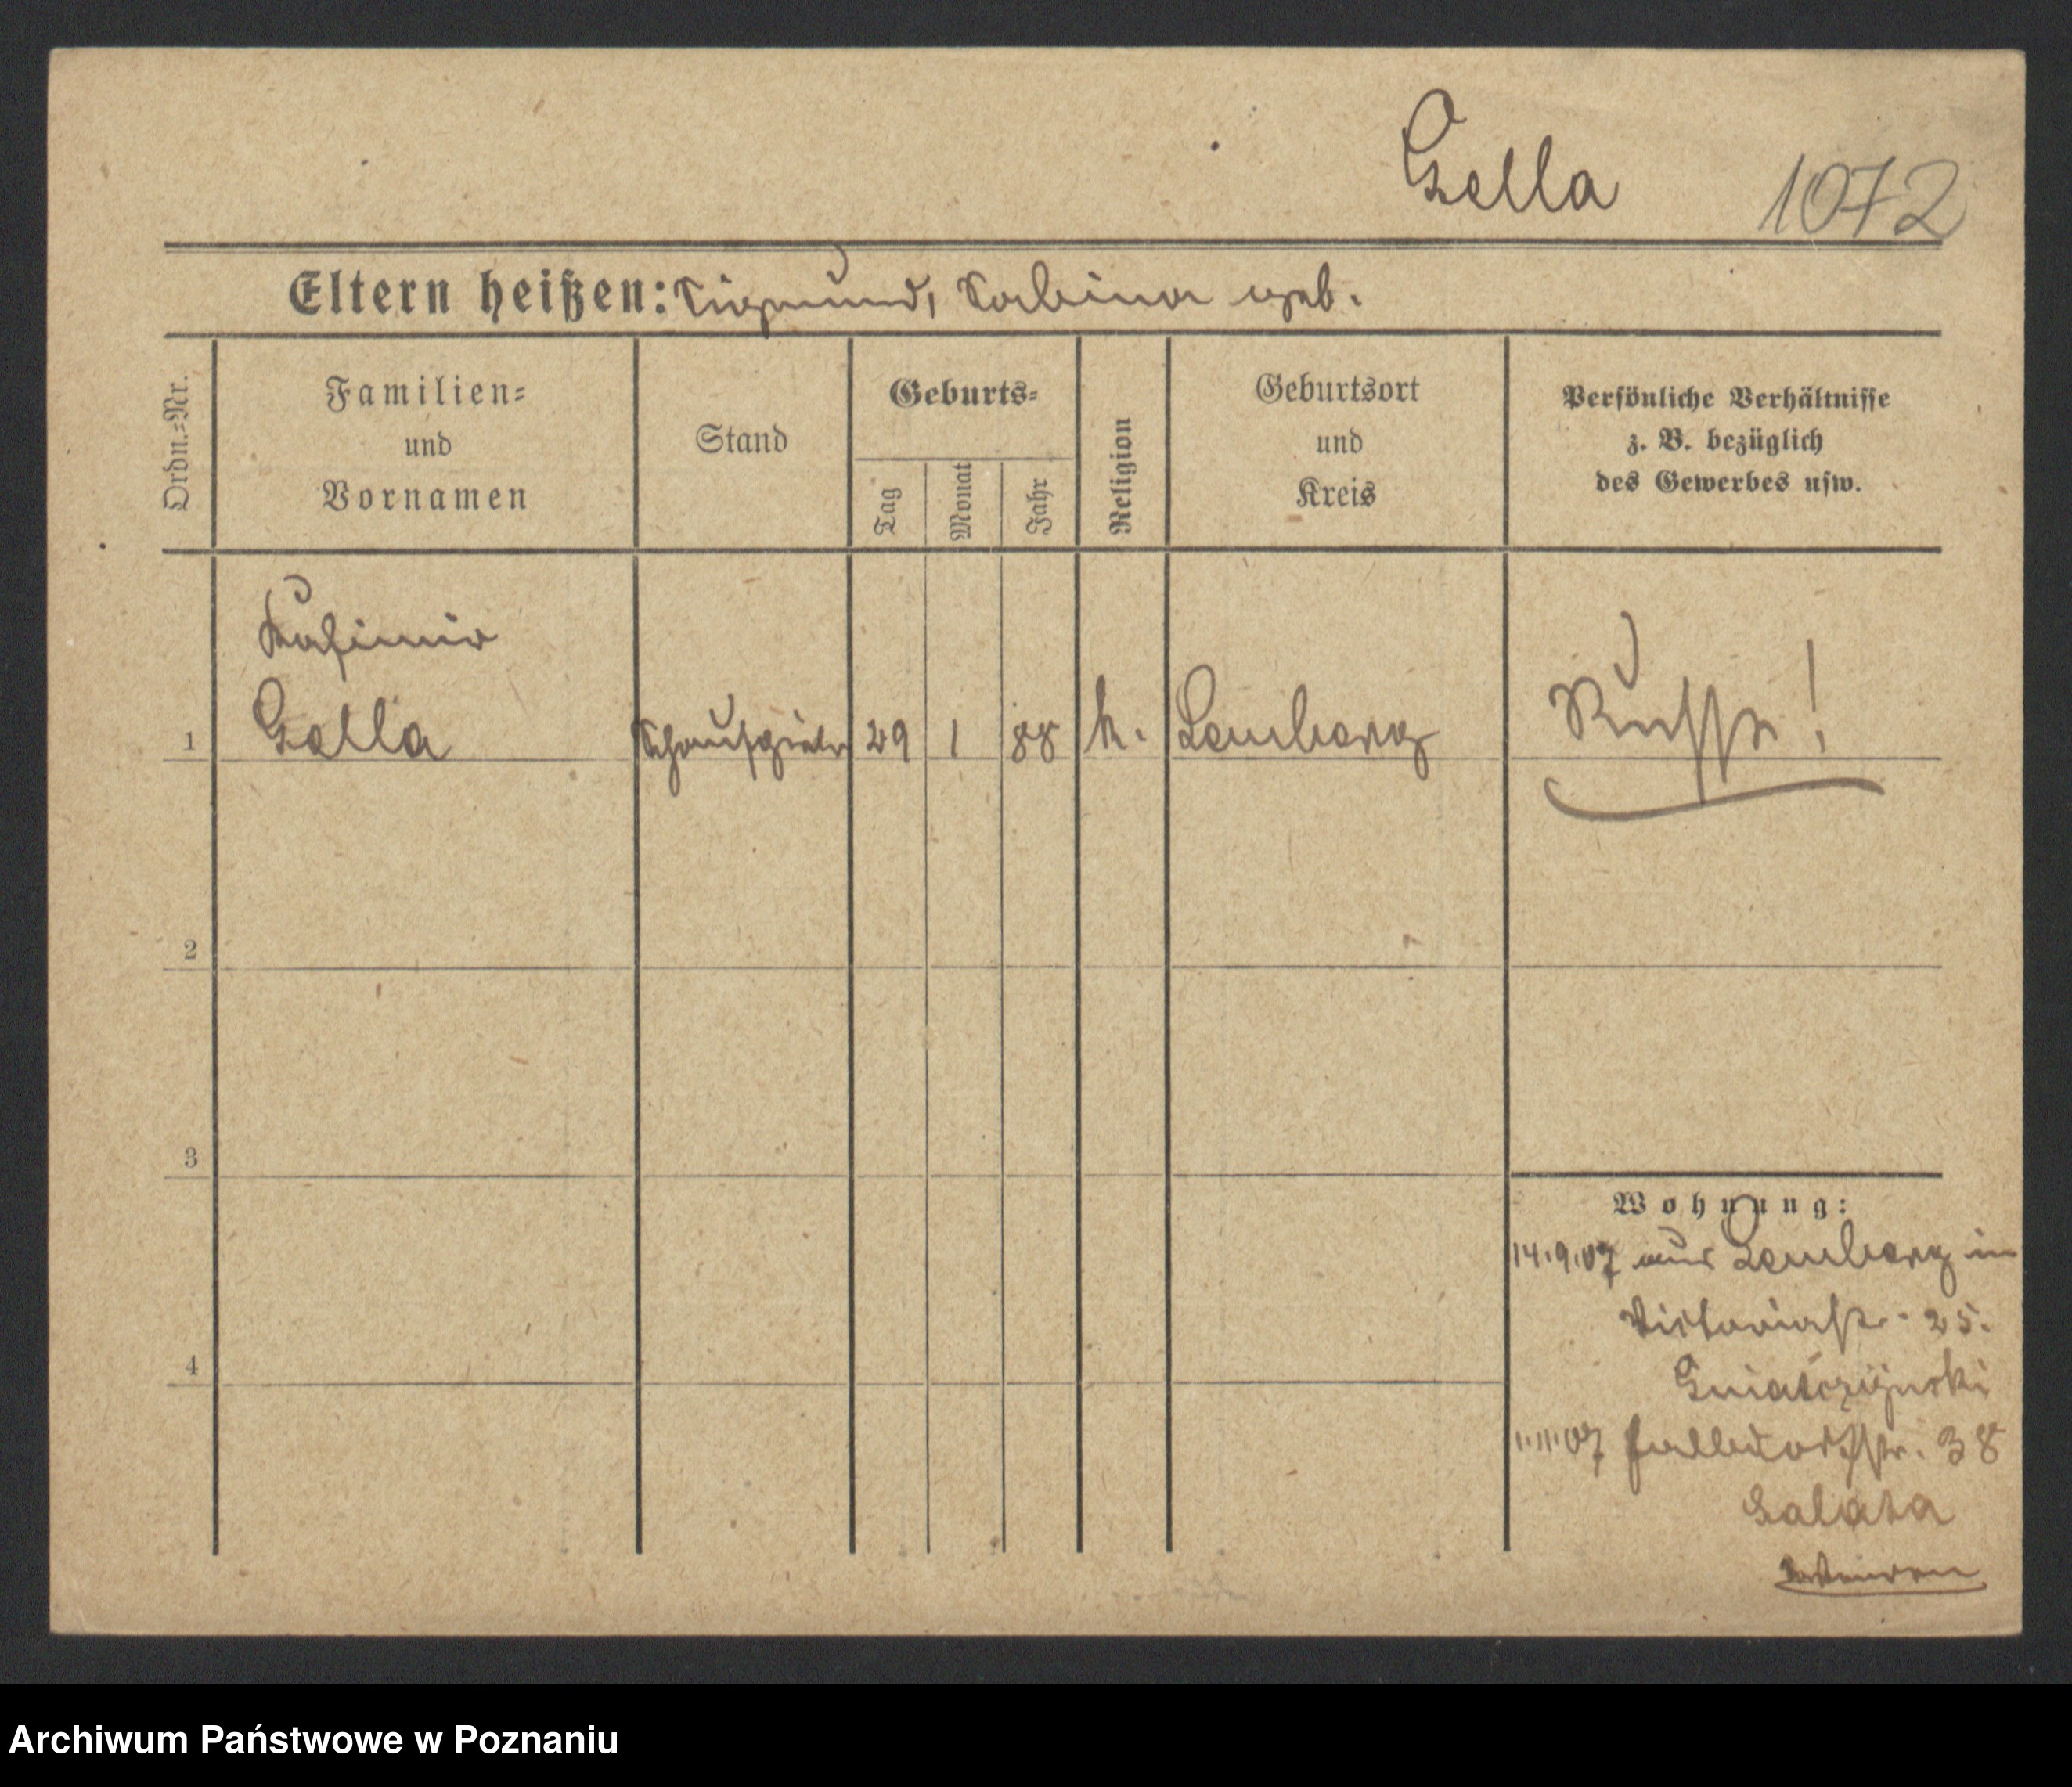 Gella 1072
Eltern heißen: Sigmund, Sabina geb.
Ordn.-Nr.
Familien-
und
Vornamen
Stand
Geburts-
Tag
Monat
Jahr
Religion
Geburtsort
und
Kreis
Persönliche Verhältnisse
z. B. bezüglich
des Gewerbes usw.
Kasimir
1 Gella Schauspieler 29 1 88 k. Lemberg Russe!
2
3
4
Wohnung:
14.9.07 aus Lemberg in
Victoriastr. 25.
07 str. 38
Archiwum Państwowe w Poznaniu